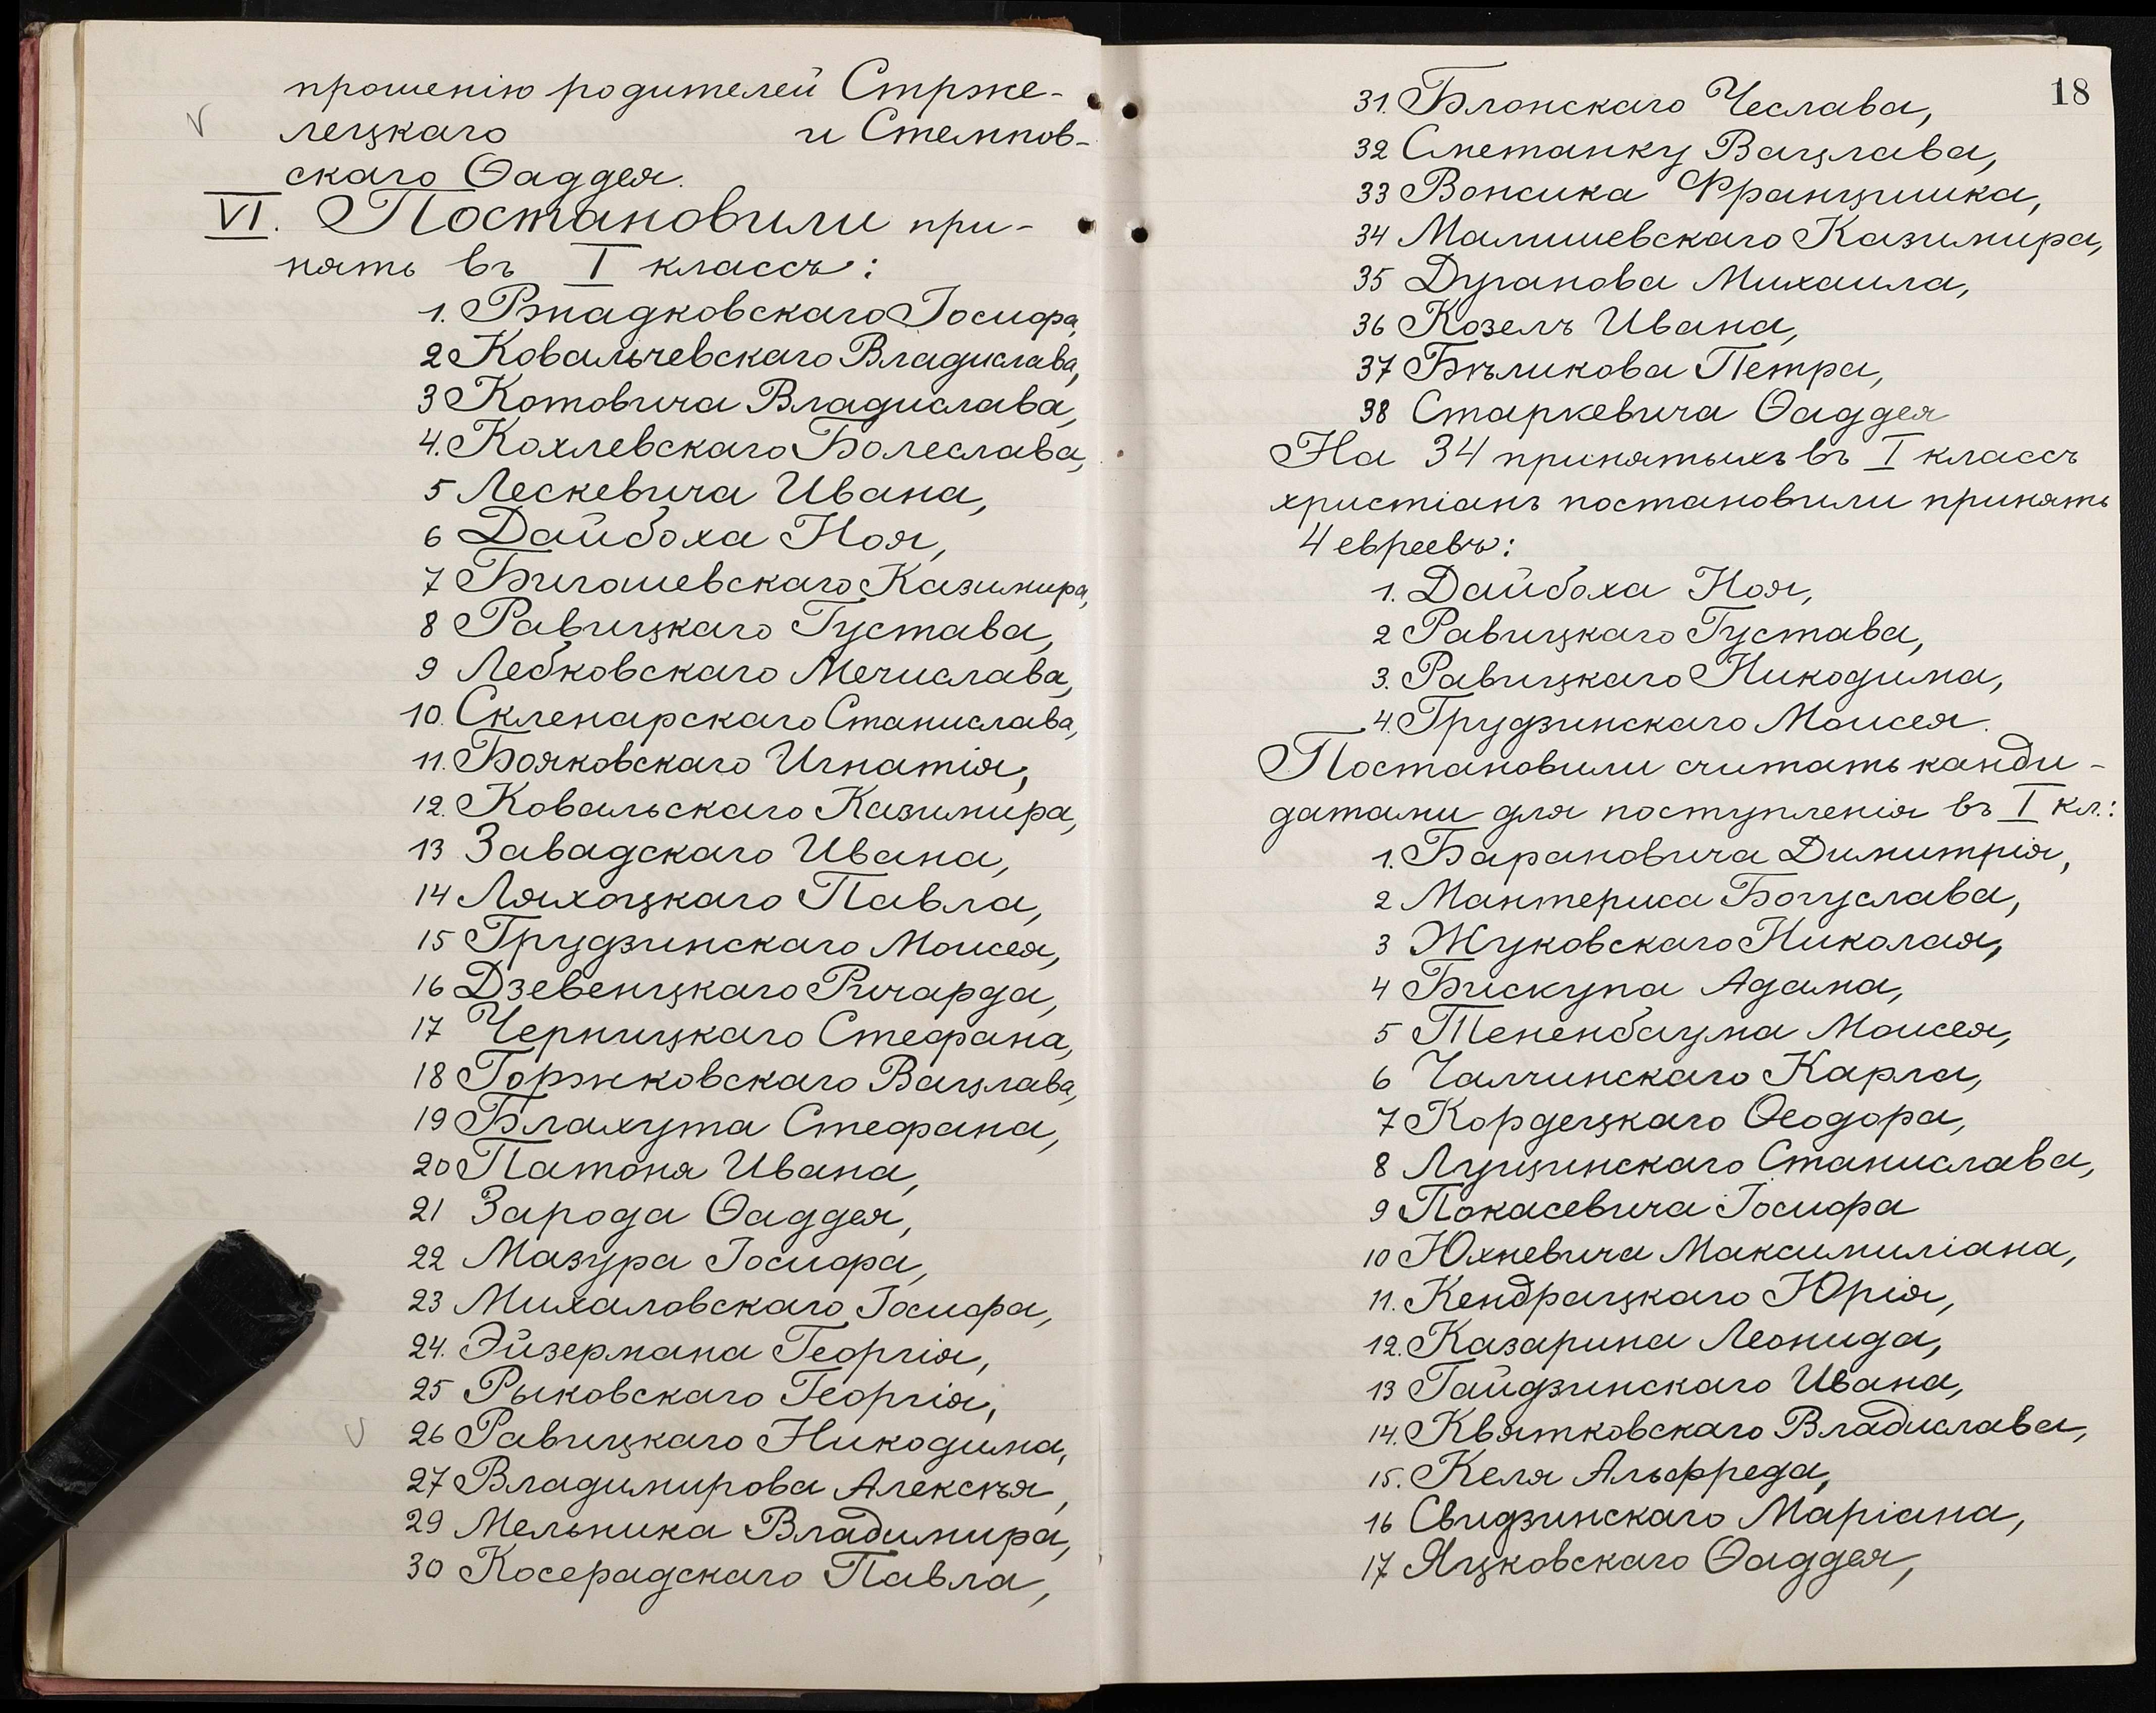 прошенію родителей Стрже-
лецкаго и Стемпов-
скаго Ѳаддея.
VI. Постановили при-
нять въ I классъ:
1. Рзпадковскаго Іосифа,
2 Ковальчевскаго Владислава,
3 Котовича Владислава,
4. Кохлевскаго Болеслава,
5 Лескевича Ивана,
6 Дайбоха Ноя,
7 Бигошевскаго Казимира,
8 Равицкаго Густава,
9 Лебковскаго Мечислава,
10. Скленарскаго Станислава,
11. Бояковскаго Игнатія,
12. Ковальскаго Казимира,
13 Завадскаго Ивана,
14 Ляхоцкаго Павла,
15 Грудзинскаго Моисея,
16 Дзевеницкаго Ричарда,
17 Черницкаго Стефана,
18 Горжковскаго Вацлава,
19 Блахута Стефана,
20 Патоня Ивана,
21 Зарода Ѳаддея,
22 Мазура Іосифа,
23 Михаловскаго Іосифа,
24. Эйзермана Георгія,
25 Рыковскаго Георгія,
26 Равицкаго Никодима,
27 Владимирова Алексѣя,
29 Мельника Владимира,
30 Косерадскаго Павла,
18
31. Блонскаго Чеслава,
32 Сметанку Вацлава,
33 Вонсика Францишка,
34 Малишевскаго Казимира,
35 Дуганова Михаила,
36 Козелъ Ивана,
37 Бѣликова Петра,
38 Старкевича Ѳаддея
На 34 принятыхъ въ I классъ
христіанъ постановили принять
4 евреевъ:
1. Дайбоха Ноя,
2 Равицкаго Густава,
3. Равицкаго Никодима,
4. Грудзинскаго Моисея.
Постановили считать канди-
датами для поступленія въ I кл.:
1. Барановича Димитрія,
2 Мантериса Богуслава,
3 Жуковскаго Николая,
4 Бискупа Адама,
5 Тененбаума Моисея,
6 Чалчинскаго Карла,
7 Кордецкаго Ѳеодора,
8 Лущинскаго Станислава,
9 Покасевича Іосифа
10 Юхневича Максимиліана,
11. Кендрацкаго Юрія,
12. Казарина Леонида,
13 Гайдзинскаго Ивана,
14. Квятковскаго Владислава,
15. Келя Альфреда,
16 Свидзинскаго Маріана,
17 Яцковскаго Ѳаддея,